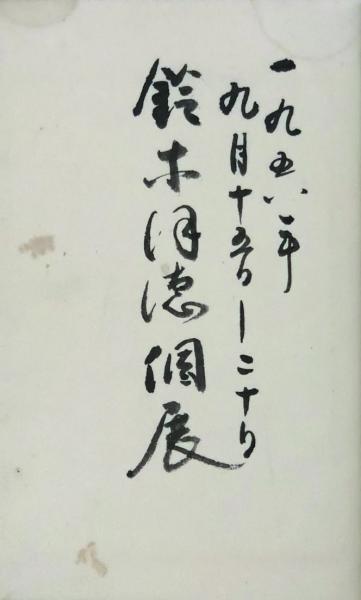 一九五八年
九月十五日―二十日
鈴木徳個展